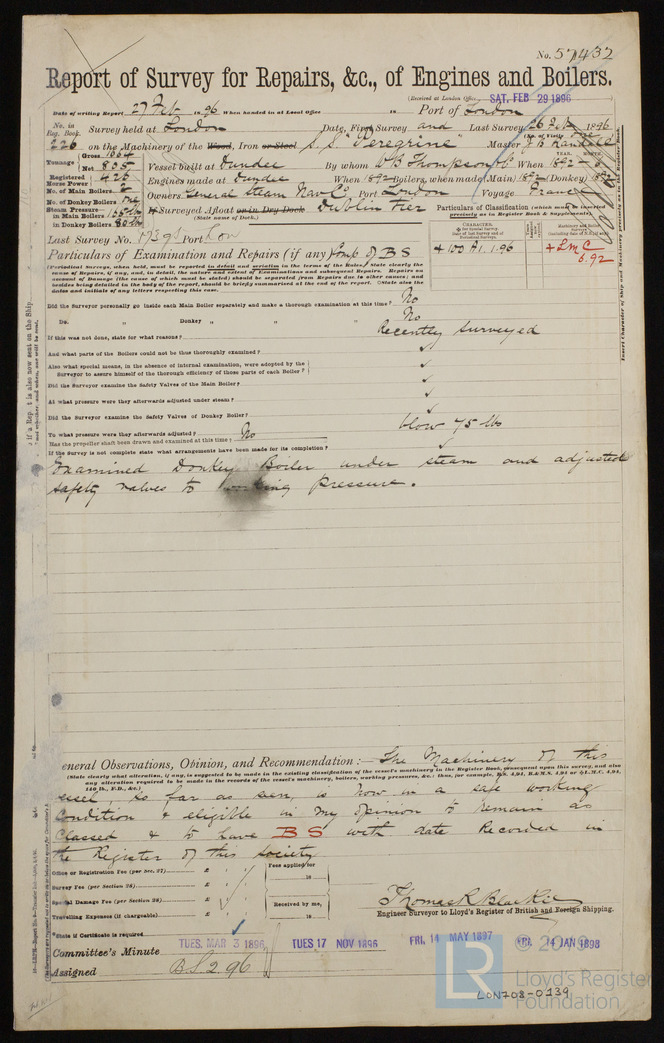 No. 57432
Report of Survey for Repairs, &c., of Engines and Boilers.
(Received at London Office SAT. FEB 29 1896
Date of writing Report 27 Feb 1896 When handed in at Local Office 18 Port of London
No. in Reg. Book. Survey held at London Date, First Survey and Last Survey 26 Feb 1896
(No. of Visits One
226 on the Machinery of the Wood, Iron or Steel S.S. "Peregrine" Master J B Randell
Tonnage Gross 1664
Net 835
Vessel built at Dundee By whom W B Thompson & Co When 1892
YEAR. MONTH.
Registered Horse Power 426
Engines made at Dundee When 1892 Boilers, when made (Main) 1892 (Donkey) 1892
No. of Main Boilers 2
Owners General Steam Nav Co Port London Voyage France
No. of Donkey Boilers one
Steam Pressure
in Main Boilers 155 lbs
in Donkey Boilers 80 lbs
If Surveyed Afloat or in Dry Dock Dublin Tier
(State name of Dock.)
Particulars of Classification (which must be inserted precisely as in Register Book & Supplements).
Last Survey No. Port Lon
CHARACTER.
+ 100 A1. 1.96
+ LMC
6.92
Particulars of Examination and Repairs (if any) Comp. of BS
(Periodical Surveys, when held, must be reported in detail and seriatim in the terms of the Rules. State clearly the cause of Repairs, if any, and, in detail, the nature and extent of Examinations and subsequent Repairs. Repairs on account of Damage (the cause of which must be stated) should be separated from Repairs due to other causes; and besides being detailed in the body of the report, should be briefly summarised at the end of the report. State also the dates and initials of any letters respecting this case.
Did the Surveyor personally go inside each Main Boiler separately and make a thorough examination at this time? No
Do. " Donkey " " " No
If this was not done, state for what reasons? Recently surveyed
And what parts of the Boilers could not be thoroughly examined?
Also what special means, in the absence of internal examination, were adopted by the Surveyor to assure himself of the thorough efficiency of those parts of each Boiler?
Did the Surveyor examine the Safety Valves of the Main Boiler?
At what pressure were they afterwards adjusted under steam?
Did the Surveyor examine the Safety Valves of Donkey Boiler?
To what pressure were they afterwards adjusted? blow 75 lbs
Has the propeller shaft been drawn and examined at this time? No
If the Survey is not complete state what arrangements have been made for its completion?
Examined Donkey Boiler under steam and adjusted
safety valves to working pressure.
eneral Observations, Opinion, and Recommendation:— The Machinery of this
(State clearly what alteration, if any, is suggested to be made in the existing classification of the vessel's machinery in the Register Book, consequent upon this survey, and also any alteration required to be made in the records of the vessel's machinery, boilers, working pressures, &c.: thus, for example, B.S. 4,94, B.&M.S. 4,94 or +L.M.C. 4,94, 140 lb., F.D., &c.)
essel so far as seen, is now in a safe working
condition & eligible in my opinion to remain as
Classed & to have BS with date recorded in
the Register of this society
Office or Registration Fee (per Sec. 27) £
Fees applied for 18
Survey Fee (per Section 28) £
Special Damage Fee (per Section 29) £
Received by me, 18
Travelling Expenses (if chargeable) £
Thomas R Blackie
Engineer Surveyor to Lloyd's Register of British and Foreign Shipping.
*State if Certificate is required
Committee's Minute TUES. MAR 3 1896 TUES 17 NOV 1896 FRI. 14 MAY 1897 FRI. 14 JAN 1898
Assigned BS 2.96
LR
Lloyd's Register
Foundation
LON708-0139